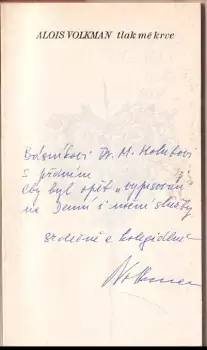 ALOIS VOLKMAN tlak mé krve
Básníkovi Dr. M. Holubovi
s přáním
aby byl opět „vypisován
na Denní i noční služby
srdečně a kolegiálně
Volkman